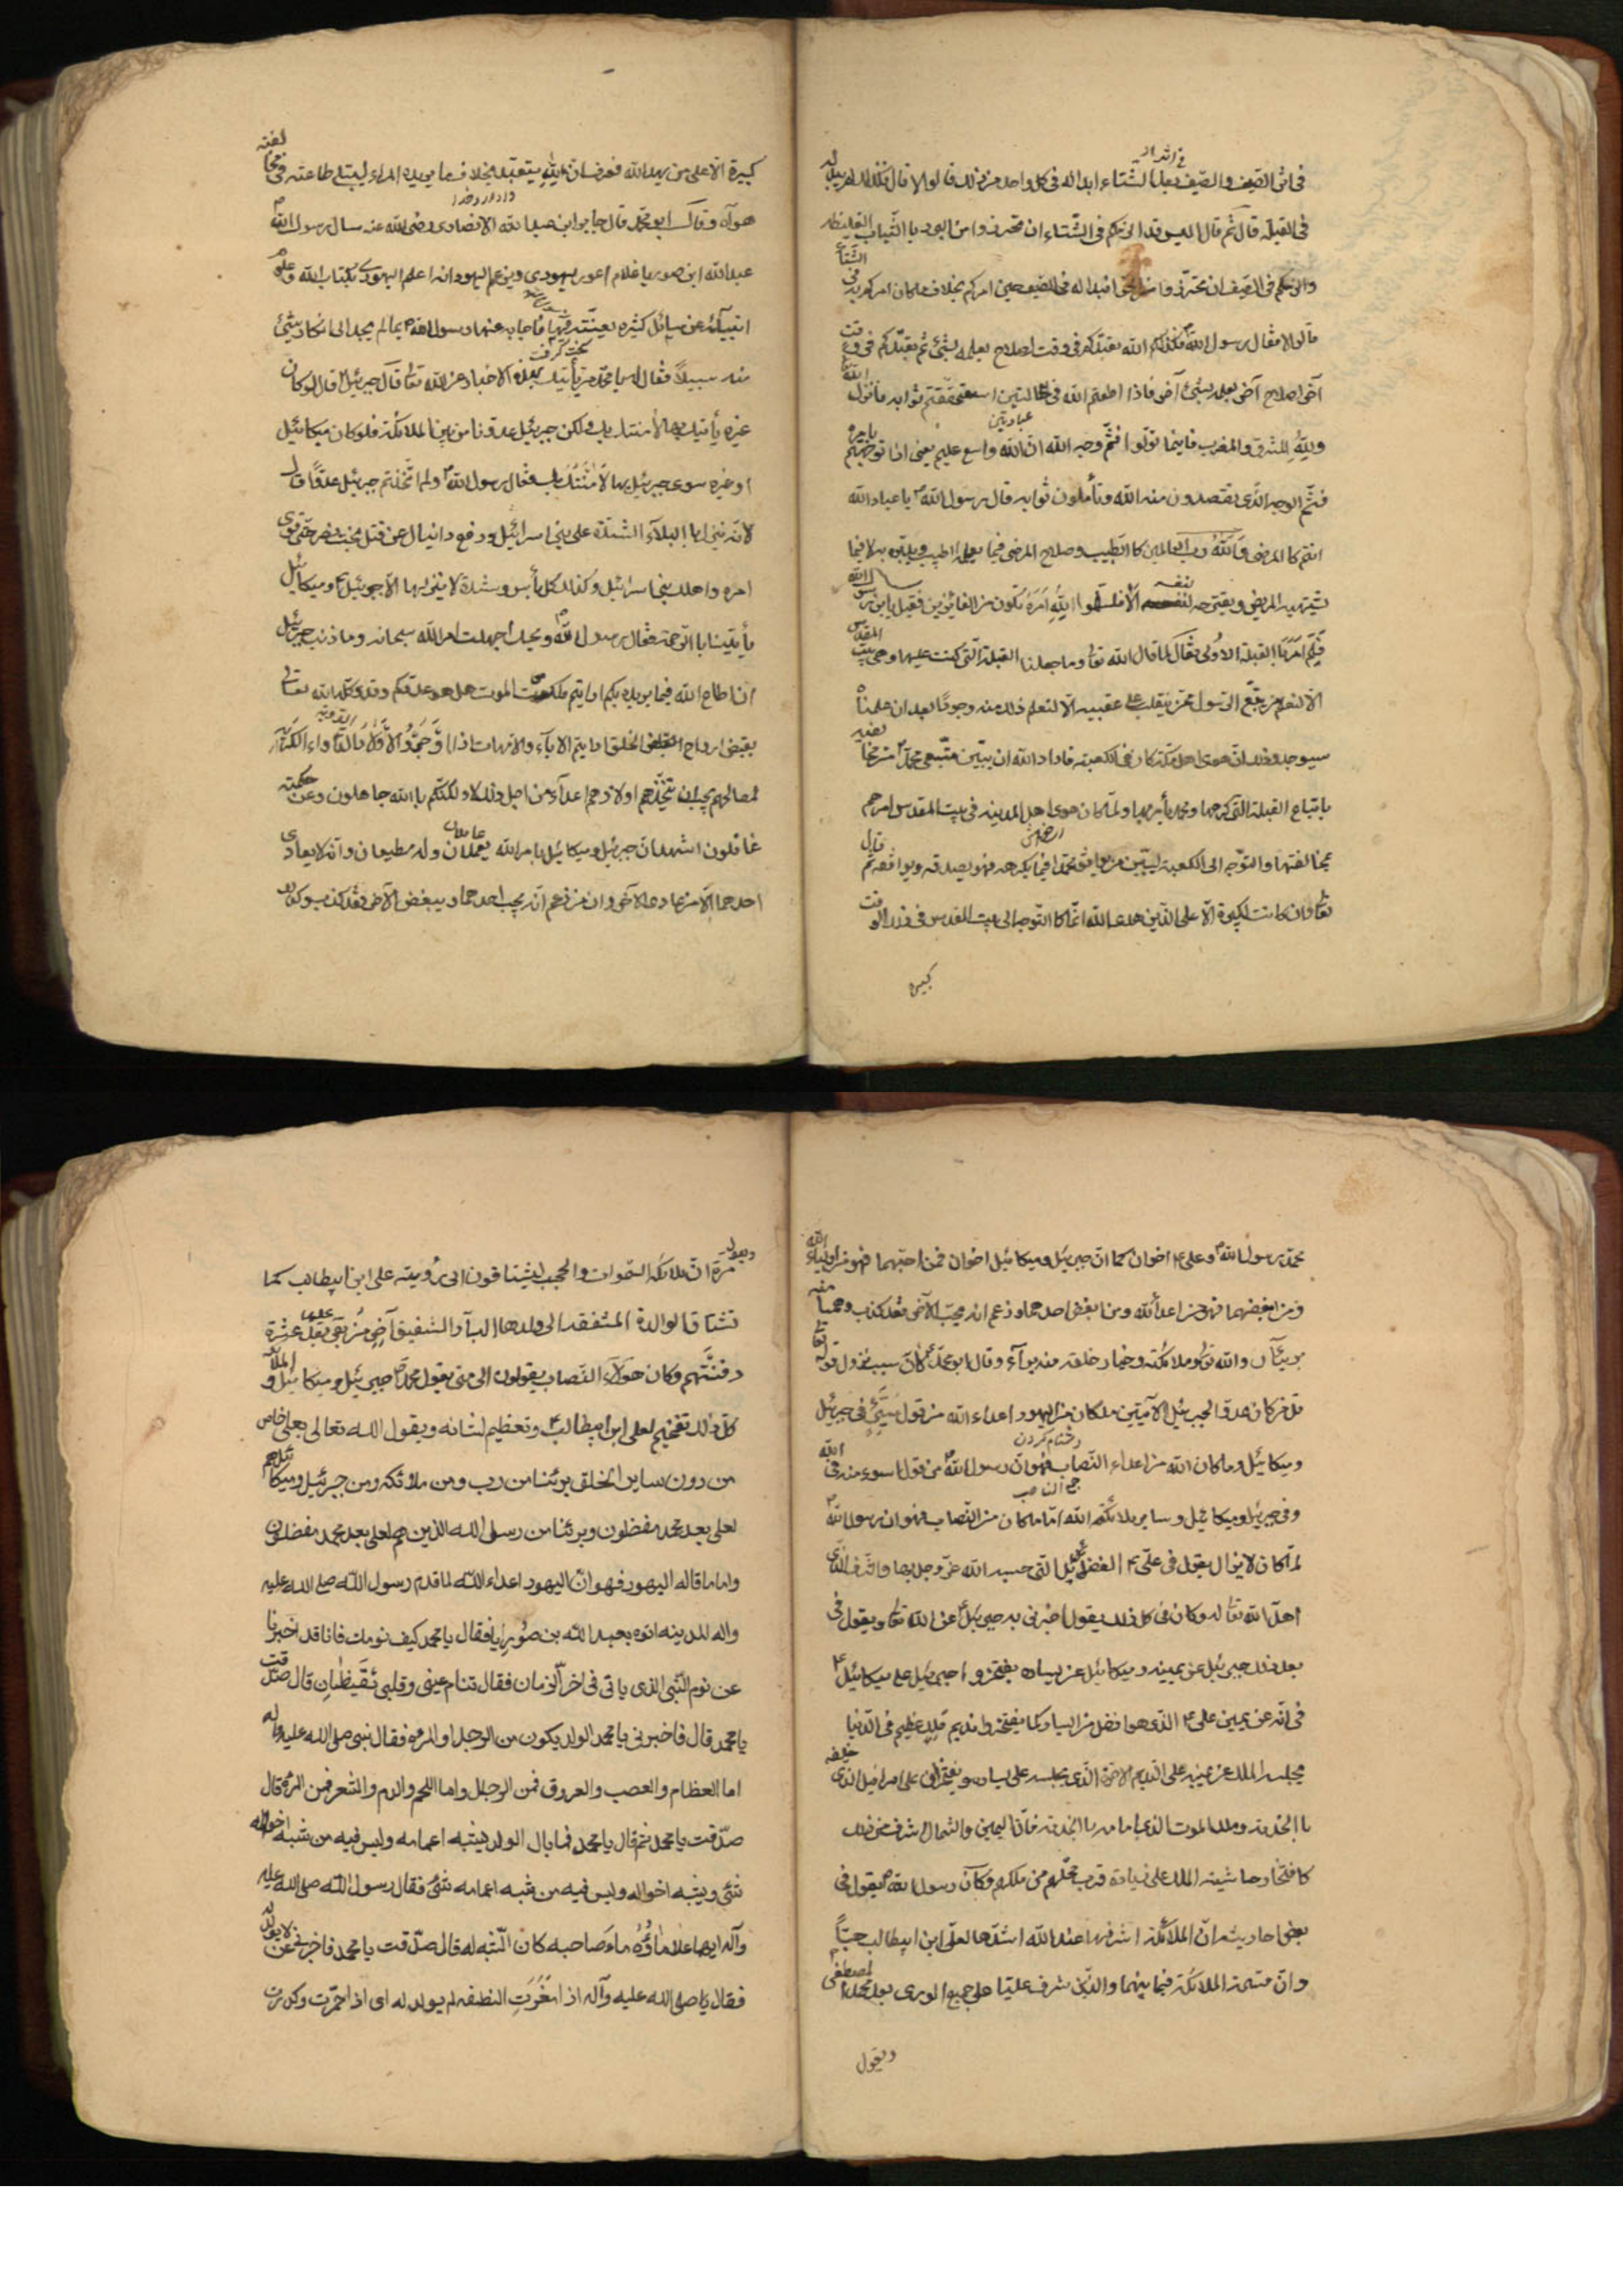 في اثر الصيف والصيف بعد الشتاء ابدا له في كل واحد من ذلك قالوا لا قال فكذلك لم يبد له
في القبلة قال ثم قال اليس قد الزمكم في الشتاء ان تحترزوا من البرد بالثياب الغليظة
والزمكم في الصيف ان تحترزوا من الحر افبدا له في الصيف حين امركم بخلاف ما كان امركم به في الشتاء
قالوا لا فقال رسول الله فكذلكم الله تعبدكم في وقت لصلاح يعلمه بشئ ثم تعبدكم في وقت
آخر لصلاح آخر يعلمه بشئ آخر فاذا اطعتم الله في الحالتين استحققتم ثوابه فانزل الله
ولله المشرق والمغرب فاينما تولوا فثم وجه الله ان الله واسع عليم يعني اذا توجهتم بامره
فثم الوجه الذي تقصدون منه الله وتأملون ثوابه ثم قال رسول الله يا عباد الله
انتم كالمرضى والله رب العالمين كالطبيب وصلاح المرضى فيما يعلمه الطبيب ويدبره به لا فيما
يشتهيه المريض ويقترحه الا فسلموا لله امره تكونوا من الفائزين فقيل يابن رسول الله
فلم امر بالقبلة الاولى فقال لما قال الله تعالى وما جعلنا القبلة التي كنت عليها وهي بيت المقدس
الا لنعلم من يتبع الرسول ممن ينقلب على عقبيه الا لنعلم ذلك منه وجودا بعد ان علمناه
سيوجد وذلك ان هوى اهل مكة كان في الكعبة فاراد الله ان يبين متبعي محمد من مخالفيه
باتباع القبلة التي كرهها ومحمد يأمر بها ولما كان هوى اهل المدينة في بيت المقدس امرهم
بمخالفتها والتوجه الى الكعبة ليبين من يوافق محمدا فيما يكرهه فهو يصدقه ويوافقه ثم قال
تعالى وان كانت لكبيرة الا على الذين هدى الله انما كان التوجه الى بيت المقدس في ذلك الوقت
كبيرة
كبيرة الا على من يهدي الله فعرف ان لله يتعبد بخلاف ما يريده المرء ليبتلي طاعته في مخالفة
هواه وقال ابو محمد قال جابر ابن عبد الله الانصاري رضي الله عنه سال رسول الله
عبد الله ابن صوريا غلام اعور يهودي يزعم اليهود انه اعلم اليهود بكتاب الله وعلوم
انبيائه عن مسائل كثيره يعنته فيها فاجابه عنها رسول الله بما لم يجد الى انكار شئ
منه سبيلا فقال له يا محمد من يأتيك بهذه الاخبار عن الله تعالى قال جبرئيل قال لو كان
غيره يأتيك بها لامنت بك ولكن جبرئيل عدونا من بين الملائكة فلو كان ميكائيل
او غيره سوى جبرئيل بها لامنت بك فقال رسول الله ولم اتخذتم جبرئيل عدوا قال
لانه ينزل بالبلاء والشدة على بني اسرائيل ودفع دانيال عن قتل بخت نصر حتى قوى
امره واهلك بني اسرائيل وكذلك كل بأس وشدة لا ينزلها الا جبرئيل وميكائيل
يأتينا بالرحمة فقال رسول الله ويحك اجهلت امر الله سبحانه وما ذنب جبرئيل
ان اطاع الله فيما يريده بكم ارايتم ملك الموت هل هو عدوكم وقد وكله الله تعالى
بقبض ارواح الخلق ارايتم الآباء والامهات اذا اوجروا الاولاد الدواء الكريه
لمصالحهم يجب ان يتخذهم اولادهم اعداء من اجل ذلك لا ولكنكم بالله جاهلون وعن حكمته
غافلون اشهد ان جبرئيل وميكائيل بامر الله يعملان وله مطيعان وانه لا يعادي
احدهما الا من عادى الآخر وان من زعم انه يحب احدهما ويبغض الآخر فقد كذب وكذلك
محمد رسول الله وعلي اخوان كما ان جبرئيل وميكائيل اخوان فمن احبهما فهو من اولياء الله
ومن ابغضهما فهو من اعداء الله ومن ابغض احدهما وزعم انه يحب الآخر فقد كذب وهما منه
بريئان والله تعالى وملائكته وخيار خلقه منه براء وقال ابو محمد كان سبب نزول قوله تعالى
قل من كان عدوا لجبرئيل الآيتين ما كان من اليهود اعداء الله من قول سيئ في جبرئيل
وميكائيل وما كان من اعداء الله النصاب فهو ان رسول الله من قول اسوء منه في الله
وفي جبرئيل وميكائيل وساير ملائكة الله اما ما كان من النصاب فهو ان رسول الله
لما كان لا يزال يقول في علي الفضائل التي خصه الله عز وجل بها والشرف الذي
اهله الله تعالى له وكان في كل ذلك يقول اخبرني به جبرئيل عن الله تعالى ويقول في
بعد ذلك جبرئيل عن يمينه وميكائيل عن يساره يفتخر جبرئيل على ميكائيل
في انه عن يمين علي الذي هو افضل من اليسار كما يفتخر نديم ملك عظيم في الدنيا
يجلسه الملك عن يمينه على النديم الآخر الذي يجلسه على يساره ويفتخران على اسرافيل الذي خلفه
بالخدمة وملك الموت الذي امامه بالخدمة فان اليمين والشمال اشرف من ذلك
كافتخار حاشية الملك على زيادة قرب محلهم من ملكهم وكان رسول الله يقول في
بعض احاديثه ان الملائكة اشرفها عند الله اشدها لعلي ابن ابيطالب حبا
وان قسمة الملائكة فيما بينهما والذي شرف عليا على جميع الورى بعد محمد المصطفى
ويقول
ويقول مرة ان ملائكة السموات والحجب ليشتاقون الى رؤيته علي ابن ابيطالب كما
تشتاق الوالدة المشفقة الى ولدها البار الشفيق آخر من بقي بعد عشرة
دفنتهم وكان هؤلاء النصاب يقولون الى متى يقول محمد جبرئيل وميكائيل والملائكة
كل ذلك تفخيم لعلي ابن ابيطالب وتعظيم لشانه ويقول الله تعالى بعلي خاص
من دون ساير الخلق برئنا من رب ومن ملائكه ومن جبرئيل وميكائيل هم
لعلي بعد محمد مفضلون وبرئنا من رسل الله الذين هم لعلي بعد محمد مفضلون
واما ما قاله اليهود فهو ان اليهود اعداء الله لما قدم رسول الله صلى الله عليه
واله المدينه اتوه بعبد الله بن صوريا فقال يا محمد كيف نومك فانا قد اخبرنا
عن نوم النبي الذي ياتى في اخر الزمان فقال تنام عيني وقلبي يقظان قال صدقت
يا محمد قال فاخبرني يا محمد الولد يكون من الرجل او المرءه فقال نبي صلى الله عليه واله
اما العظام والعصب والعروق فمن الرجل واما اللحم والدم والشعر فمن المرءه قال
صدقت يا محمد ثم قال يا محمد فما بال الولد يشبه اعمامه وليس فيه من شبه اخواله
شئ ويشبه اخواله وليس فيه من شبه اعمامه شئ فقال رسول الله صلى الله عليه
وآله ايهما علا ماؤه ماء صاحبه كان الشبه له قال صدقت يا محمد فاخبرني عن لا يولد له
فقال صلى الله عليه وآله اذا مغرت النطفه لم يولد له اى اذا احمرت وكدرت